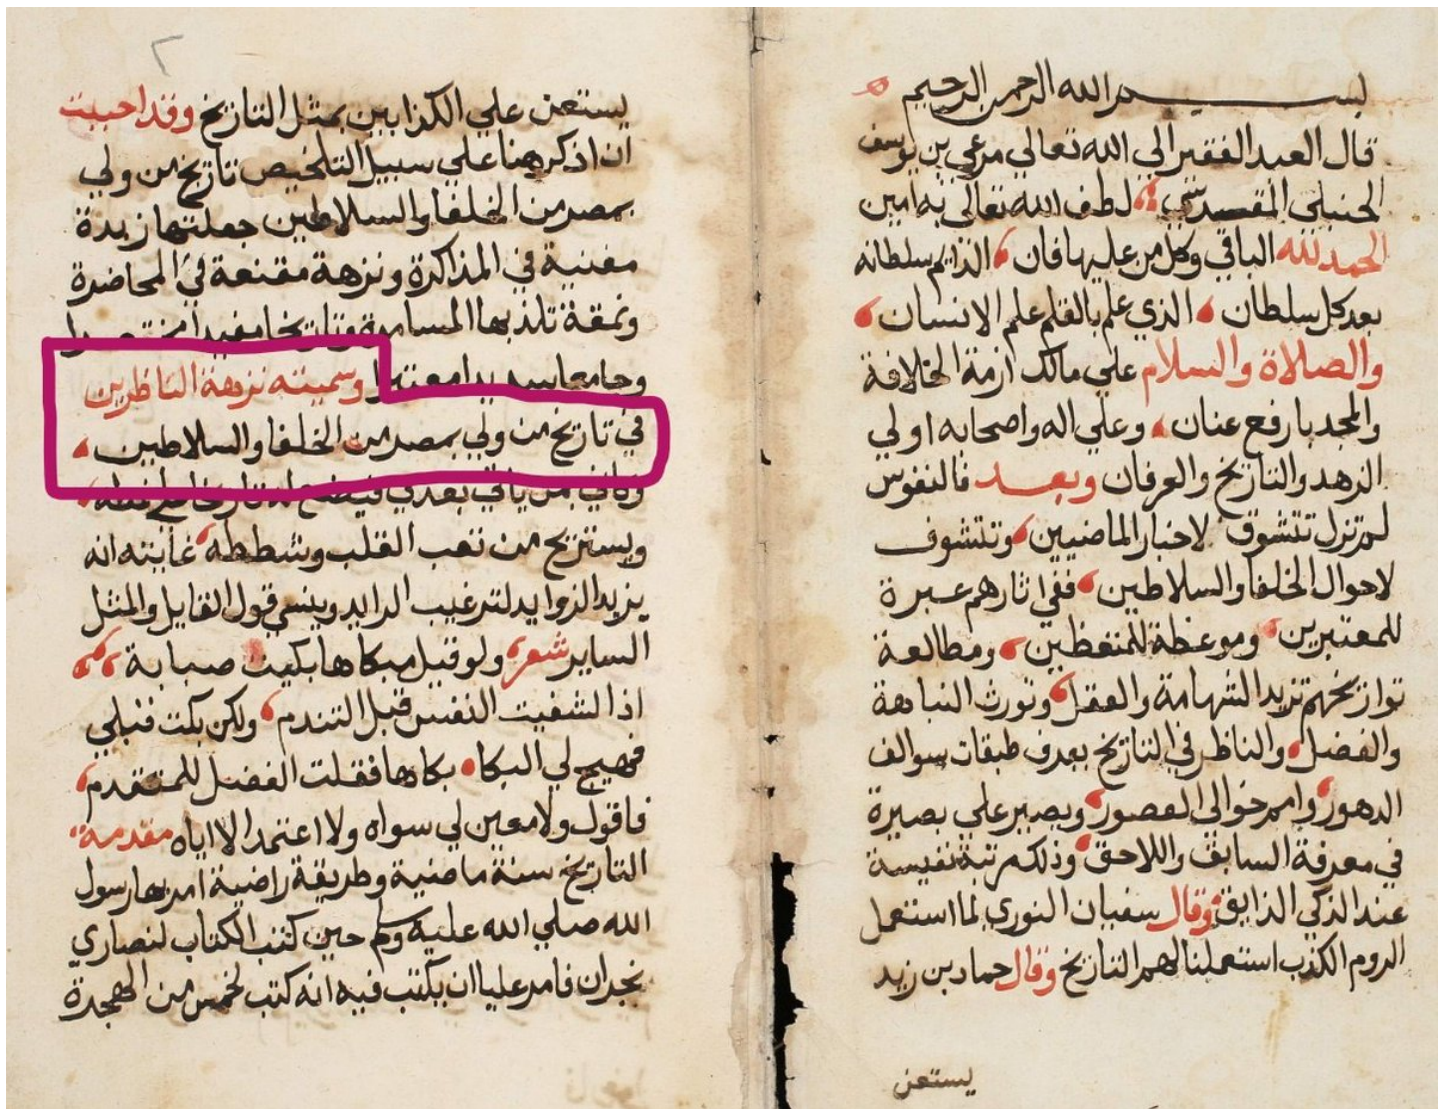 بسم الله الرحمن الرحيم
قال العبد الفقير الي الله تعالي مرعي بن يوسف
الحنبلي المقدسي لطف الله تعالي به امين
الحمد لله الباقي وكل من عليها فان الدايم سلطانه
بعد كل سلطان الذي علم بالقلم علم الانسان
والصلاة والسلام علي مالك ازمة الخلافة
والمجد بارفع عنان وعلي اله واصحابه اولي
الزهد والتاريخ والعرفان وبعد فالنفوس
لم تزل تتشوق لاخبار الماضيين وتتشوف
لاحوال الخلفا والسلاطين ففي اثارهم عبرة
للمعتبرين وموعظة للمتعظين ومطالعة
تواريخهم تزيد الشهامة والعقل وتورث النباهة
والفضل والناظر في التاريخ يعرف طبقات سوالف
الدهور وامر خوالي العصور ويصير علي بصيرة
في معرفة السابق واللاحق وذلك مرتبة نفيسة
عند الذكي الذايق وقال سفيان الثوري لما استعمل
الروم الكذب استعملنا لهم التاريخ وقال حماد بن زيد
يستعن
٢
يستعن علي الكذابين بمثل التاريخ وقد احببت
ان اذكر هنا علي سبيل التلخيص تاريخ من ولي
بمصر من الخلفا والسلاطين جعلتها زبدة
مغنية في المذاكرة ونزهة مقنعة في المحاضرة
ونمقة تلذ بها المسامرة وتاريخا مفيدا مختصرا
وجامعا سديدا معتبرا وسميته نزهة الناظرين
في تاريخ من ولي بمصر من الخلفا والسلاطين
وكاني بمن ياتي بعدي فيضع له تاريخا
ويستريح من تعب القلب وشططه غايته انه
يزيد الزوايد لترغيب الرايد وينسي قول القايل والمثل
الساير شعر ولو قبل مبكاها بكيت صبابة
اذا لشفيت النفس قبل التندم ولكن بكت قبلي
فهيج لي البكا بكاها فقلت الفضل للمتقدم
فاقول ولا معين لي سواه ولا اعتمد الا اياه مقدمة
التاريخ سنة ماضية وطريقة راضية امر بها رسول
الله صلي الله عليه وسلم حين كتب الكتاب لنصاري
نجران فامر عليا ان يكتب فيه انه كتب لخمس من الهجرة